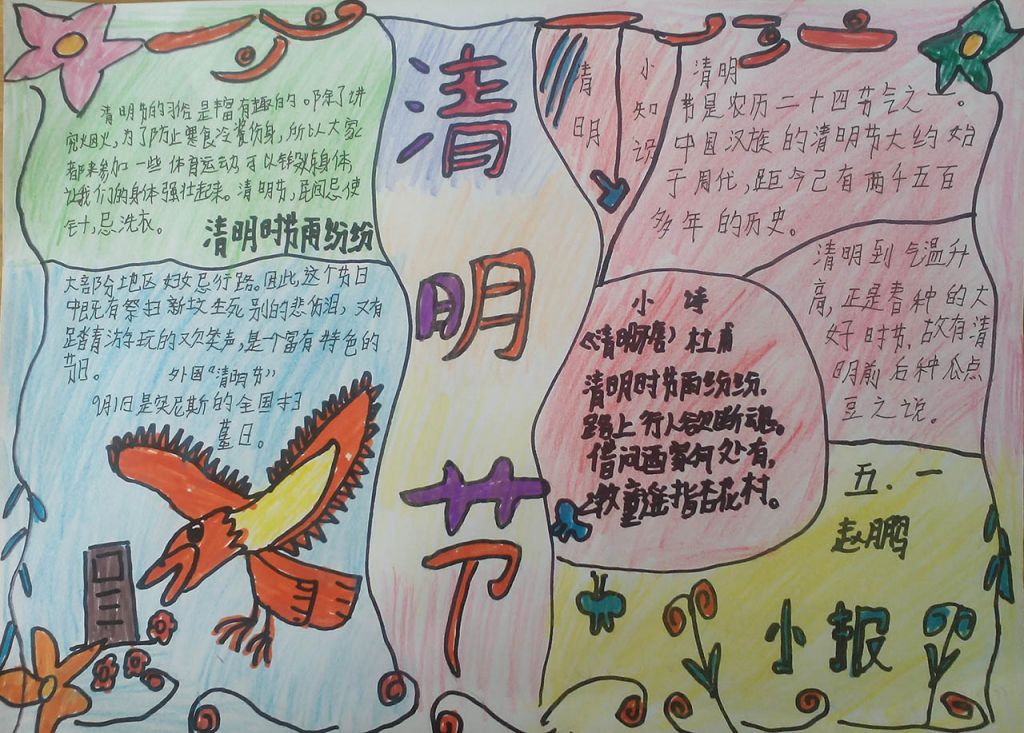 清明节的习俗是丰富有趣的。除了讲
究禁火,为了防止寒食冷餐伤身,所以大家
都来参加一些体育运动可以锻炼身体,
让我们的身体强壮起来。清明节,民间忌使
针,忌洗衣。
清明时节雨纷纷
大部份地区妇女忌行路。因此,这个节日
中既有祭扫新坟生死别的悲伤泪,又有
踏青游玩的又欢笑声,是一个富有特色的
节日。
外国“清明节”
9月1日是突尼斯的全国扫
墓日。
清
明
节
清明
小知识
清明
节是农历二十四节气之一。
中国汉族的清明节大约始
于周代,距今已有两千五百
多年的历史。
清明到气温升
高,正是春种的大
好时节,故有清
明前后种瓜点
豆之说。
小诗
杜甫
清明时节雨纷纷,
路上行人欲断魂。
借问酒家何处有,
牧童遥指杏花村。
五.一
赵鹏
小报